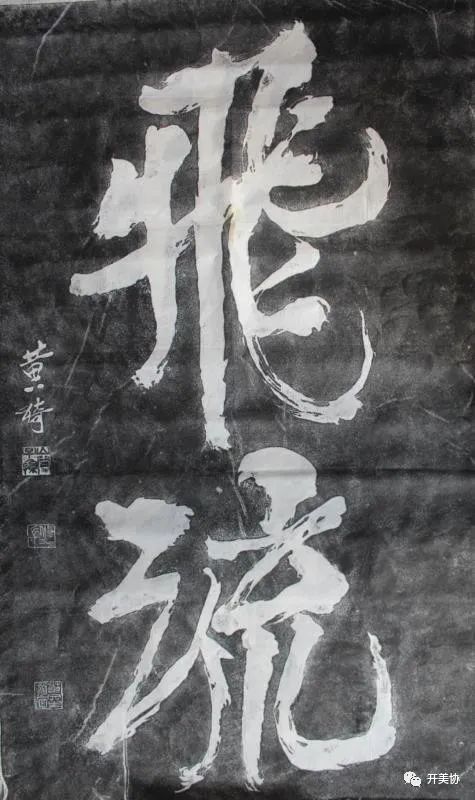 飛流
黄綺
开美协